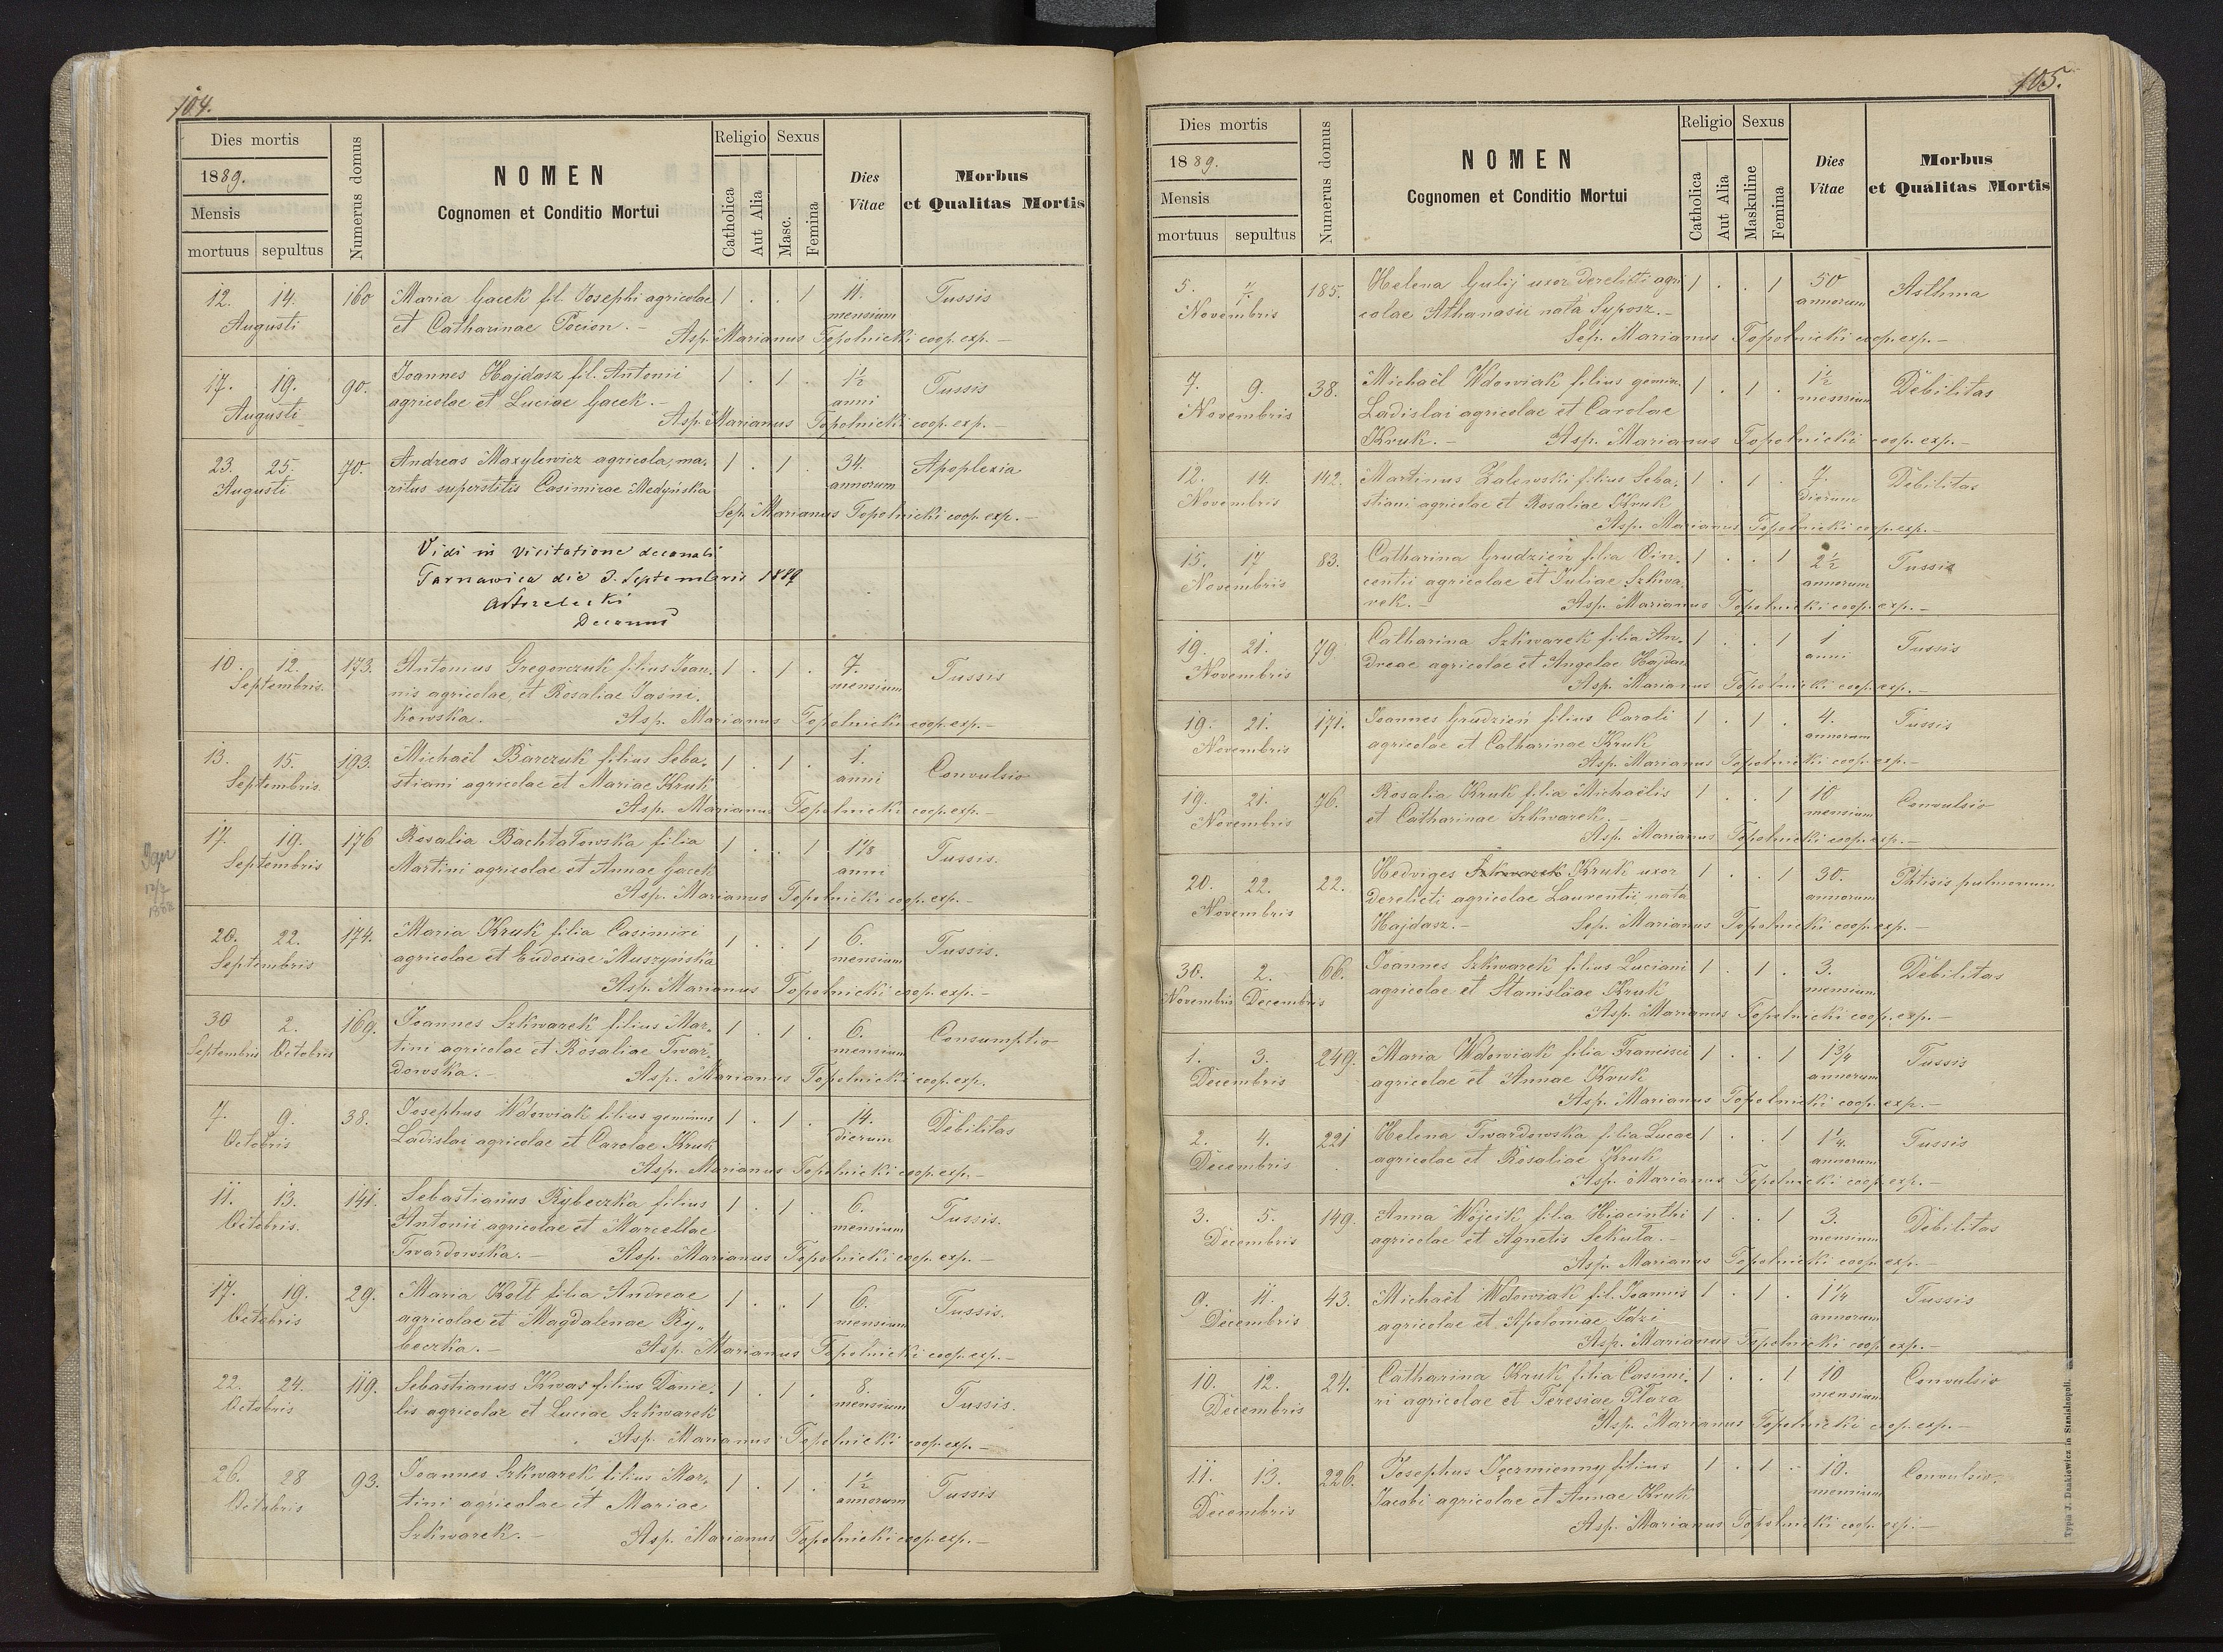 104.
Dies mortis
1889.
Mensis
mortuus sepultus
Numerus domus
NOMEN
Cognomen et Conditio Mortui
Religio
Catholica
Aut Alia
Sexus
Masc.
Femina
Dies
Vitae
Morbus
et Qualitas Mortis
12. 14. 160 Maria Gacek fil. Josephi agricolae 1 . . 1 11. Tussis
Augusti et Catharinae Pocion. — mensium
Asp. Marianus Topolnicki coop. exp. —
17. 19. 90. Joannes Hajdasz fil. Antonii 1 . 1 . 1½ Tussis
Augusti agricolae et Luciae Gacek. — anni
Asp. Marianus Topolnicki coop. exp. —
23. 25. 70. Andreas Maxylewicz agricola, ma- 1 . 1 . 34. Apoplexia
Augusti ritus superstitis Casimirae Medyńska annorum
Sep. Marianus Topolnicki coop. exp. —
Vidi in visitatione decanali
Tarnawica die 3. Septembris 1889
Decanus
10. 12. 173. Antonius Gregorczuk filius Joan- 1 . 1 . 7. Tussis
Septembris. nis agricolae et Rosaliae Jasni- mensium
kowska. — Asp. Marianus Topolnicki coop. exp. —
13. 15. 193. Michaël Barczuk filius Seba- 1 . 1 . 1. Convulsio
Septembris. stiani agricolae et Mariae Kruk anni
Asp. Marianus Topolnicki coop. exp. —
17. 19. 176 Rosalia Bachtałowska filia 1 . . 1 Tussis.
Septembris Martini agricolae et Annae Gacek anni
Asp. Marianus Topolnicki coop. exp. —
12/7
1888
20. 22. 174. Maria Kruk filia Casimiri 1 . . 1 6. Tussis.
Septembris agricolae et Eudoxiae Muszyńska mensium
Asp. Marianus Topolnicki coop. exp. —
30 2. 169. Joannes Szkwarek filius Mar- 1 . 1 . 6. Consumptio
Septembris Octobris tini agricolae et Rosaliae Twar- mensium
dowska. — Asp. Marianus Topolnicki coop. exp.
7. 9. 38. Josephus Wdowiak filius geminus 1 . 1 . 14. Debilitas
Octobris Ladislai agricolae et Carolae Kruk dierum
Asp. Marianus Topolnicki coop. exp. —
11. 13. 141. Sebastianus Rybeczka filius 1 . 1 . 6. Tussis.
Octobris. Antonii agricolae et Marcellae mensium
Twardowska. — Asp. Marianus Topolnicki coop. exp. —
17. 19. 29. Maria Kott filia Andreae 1 . . 1 6. Tussis.
Octobris agricolae et Magdalenae Ry- mensium
beczka. — Asp. Marianus Topolnicki coop. exp. —
22. 24. 119. Sebastianus Kwas filius Danie- 1 . 1 . 8. Tussis.
Octobris lis agricolae et Luciae Szkwarek mensium
Asp. Marianus Topolnicki coop. exp. —
26. 28 93. Joannes Szkwarek filius Mar- 1 . 1 . 1½ Tussis
Octobris tini agricolae et Mariae annorum
Szkwarek. — Asp. Marianus Topolnicki coop. exp. —
105.
Dies mortis
1889.
Mensis
mortuus sepultus
Numerus domus
NOMEN
Cognomen et Conditio Mortui
Religio
Catholica
Aut Alia
Sexus
Maskuline
Femina
Dies
Vitae
Morbus
et Qualitas Mortis
5. 185. Helena Gulij uxor derelicti agri- 1 . . 1 50 Asthma
Novembris colae Athanasii nata Syposz. — annorum
Sep. Marianus Topolnicki coop. exp. —
7. 9. 38. Michaël Wdowiak filius gemin. 1 . 1 . 1½ Debilitas
Novembris Ladislai agricolae et Carolae mensium
Kruk. — Asp. Marianus Topolnicki coop. exp. —
12. 14. 142. Martinus Zalewski filius Seba- 1 . 1 . 7. Debilitas
Novembris stiani agricolae et Rosaliae Kruk dierum
Asp. Marianus Topolnicki coop. exp. —
15. 17 83. Catharina Grudzień filia Vin- 1 . . 1 2½ Tussis
Novembris centii agricolae et Juliae Szkwa- annorum
rek. — Asp. Marianus Topolnicki coop. exp. —
19. 21. 79. Catharina Szkwarek filia An- 1 . . 1 1 Tussis
Novembris dreae agricolae et Angelae Hajdasz anni
Asp. Marianus Topolnicki coop. exp. —
19. 21. 171. Joannes Grudzień filius Caroli 1 . 1 . 4. Tussis
Novembris agricolae et Catharinae Kruk annorum
Asp. Marianus Topolnicki coop. exp. —
19. 21. 76. Rosalia Kruk filia Michaëlis 1 . . 1 10 Convulsio
Novembris et Catharinae Szkwarek. — mensium
Asp. Marianus Topolnicki coop. exp. —
20. 22. 22. Hedviges Szkwarek Kruk uxor 1 . . 1 30. Phtisis pulmonum
Novembris derelicti agricolae Laurentii nata annorum
Hajdasz. — Sep. Marianus Topolnicki coop. exp. —
30. 2. 66. Joannes Szkwarek filius Luciani 1 . 1 . 3. Debilitas
Novembris Decembris agricolae et Stanisläae Kruk mensium
Asp. Marianus Topolnicki coop. exp. —
1. 3. 249. Maria Wdowiak filia Francisci 1 . . 1 1¾ Tussis
Decembris agricolae et Annae Kruk annorum
Asp. Marianus Topolnicki coop. exp. —
2. 4. 221 Helena Twardowska filia Lucae 1 . . 1 1¼. Tussis
Decembris agricolae et Rosaliae Kruk annorum
Asp. Marianus Topolnicki coop. exp. —
3. 5. 149. Anna Wójcik filia Hiacinthi 1 . . 1 3. Debilitas
Decembris agricolae et Agnetis Sekuła. — mensium
Asp. Marianus Topolnicki coop. exp. —
9. 11. 43. Michaël Wdowiak fil. Joannis 1 . 1 . 1¼ Tussis
Decembris agricolae et Apoloniae Idzi annorum
Asp. Marianus Topolnicki coop. exp. —
10. 12. 24. Catharina Kruk filia Casimi- 1 . . 1 10 Convulsio
Decembris ri agricolae et Teresiae Płaza mensium
Asp. Marianus Topolnicki coop. exp. —
11. 13. 226. Josephus filius 1 . 1 . 10. Convulsio.
Decembris Jacobi agricolae et Annae Kruk mensium
Asp. Marianus Topolnicki coop. exp. —
Typis J. Dankiewicz in Stanislaopoli.